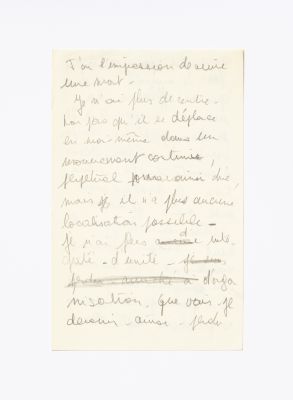 J'ai l'impression de suivre
une mort -
Je n'ai plus de centre -
non pas qu'il se déplace
en moi-même dans un
mouvement continu,
perpétuel pour ainsi dire,
mais il n'a plus aucune
localisation possible -
Je n'ai plus d'inté-
grité - d'unité -
d'orga
nisation. Que vais-je
devenir - ainsi - perdu